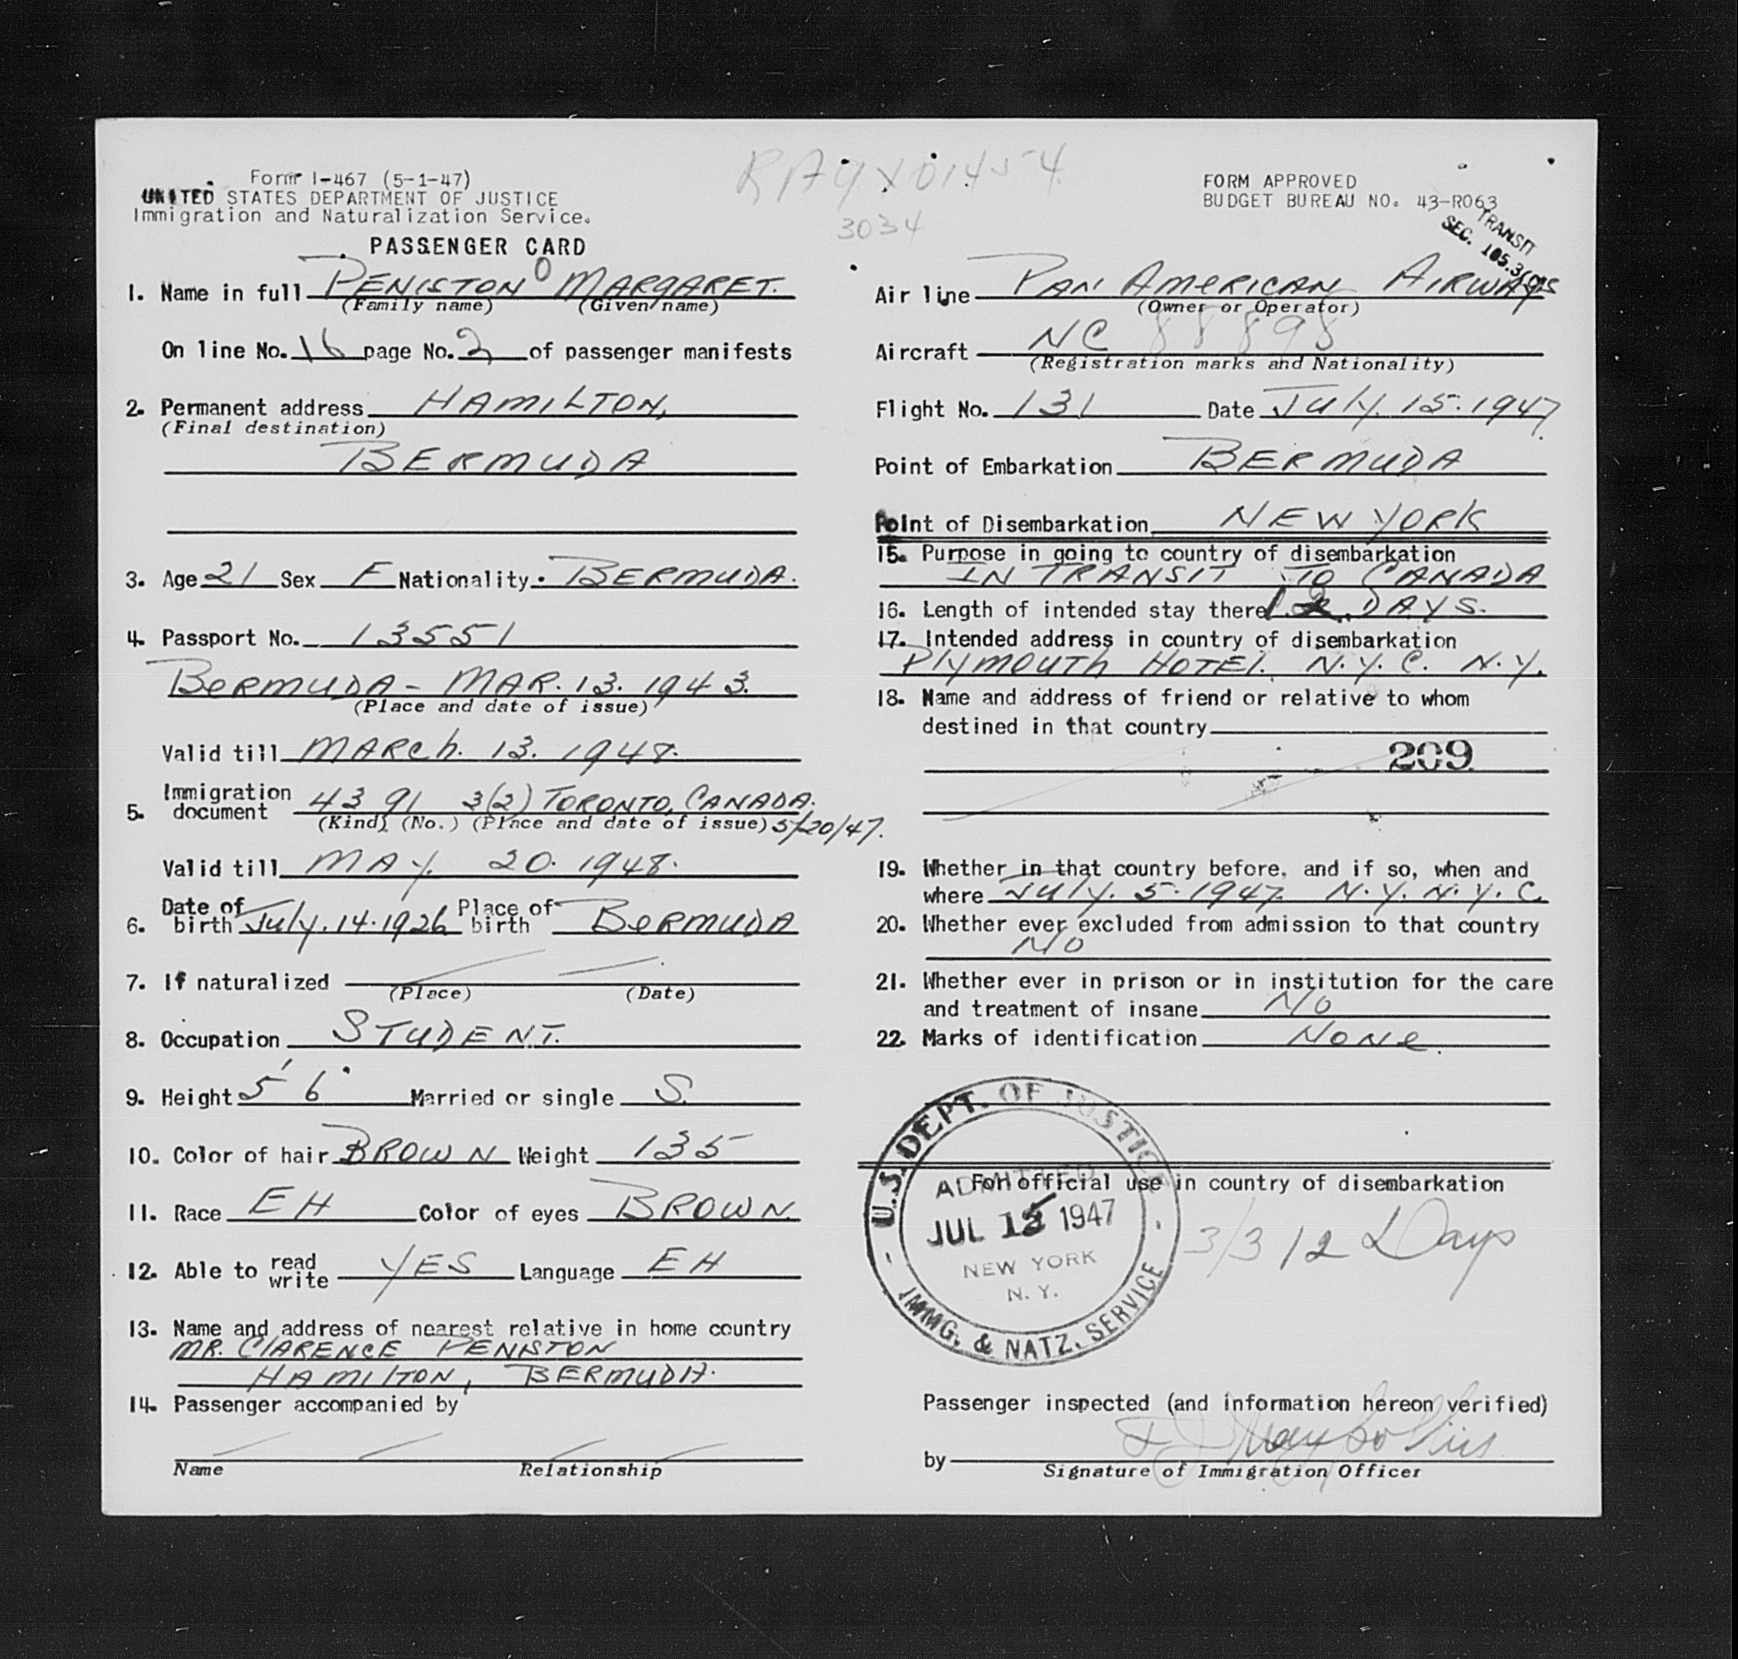 Form I-467 (5-1-47)
UNITED STATES DEPARTMENT OF JUSTICE
Immigration and Naturalization Service.
PASSENGER CARD
3034
1. Name in full PENISTON MARGARET.
(Family name) (Given name)
On line No. 16 page No. 2 of passenger manifests
2. Permanent address HAMILTON,
(Final destination)
BERMUDA
3. Age 21 Sex F Nationality BERMUDA.
4. Passport No. 13551
BERMUDA - MAR. 13. 1943.
(Place and date of issue)
Valid till MARCH. 13. 1948.
5. Immigration document 4391 3(2) TORONTO, CANADA.
(Kind) (No.) (Place and date of issue) 5/20/47.
Valid till MAY. 20. 1948.
6. Date of birth July. 14. 1926 Place of birth BERMUDA
7. If naturalized
(Place) (Date)
8. Occupation STUDENT.
9. Height 5' 6" Married or single S.
10. Color of hair BROWN Weight 135
11. Race EH Color of eyes BROWN.
12. Able to read write YES Language EH
13. Name and address of nearest relative in home country
MR. CLARENCE PENISTON
HAMILTON, BERMUDA.
14. Passenger accompanied by
Name Relationship
FORM APPROVED
BUDGET BUREAU NO. 43-R063
TRANSIT
SEC. 105.3
Air line PAN AMERICAN AIRWAYS
(Owner or Operator)
Aircraft NC 88898
(Registration marks and Nationality)
Flight No. 131 Date July. 15. 1947.
Point of Embarkation BERMUDA
Point of Disembarkation NEW YORK
15. Purpose in going to country of disembarkation
IN TRANSIT TO CANADA
16. Length of intended stay there DAYS.
17. Intended address in country of disembarkation
PLYMOUTH HOTEL. N.Y.C. N.Y.
18. Name and address of friend or relative to whom
destined in that country
209
19. Whether in that country before, and if so, when and
where July. 5. 1947. N.Y. N.Y.C.
20. Whether ever excluded from admission to that country
NO
21. Whether ever in prison or in institution for the care
and treatment of insane NO
22. Marks of identification NONE.
For official use in country of disembarkation
U.S. DEPT. OF JUSTICE
ADMITTED
JUL 15 1947
NEW YORK
N. Y.
IMMG. & NATZ. SERVICE
3/3 12 Days
Passenger inspected (and information hereon verified)
by
Signature of Immigration Officer